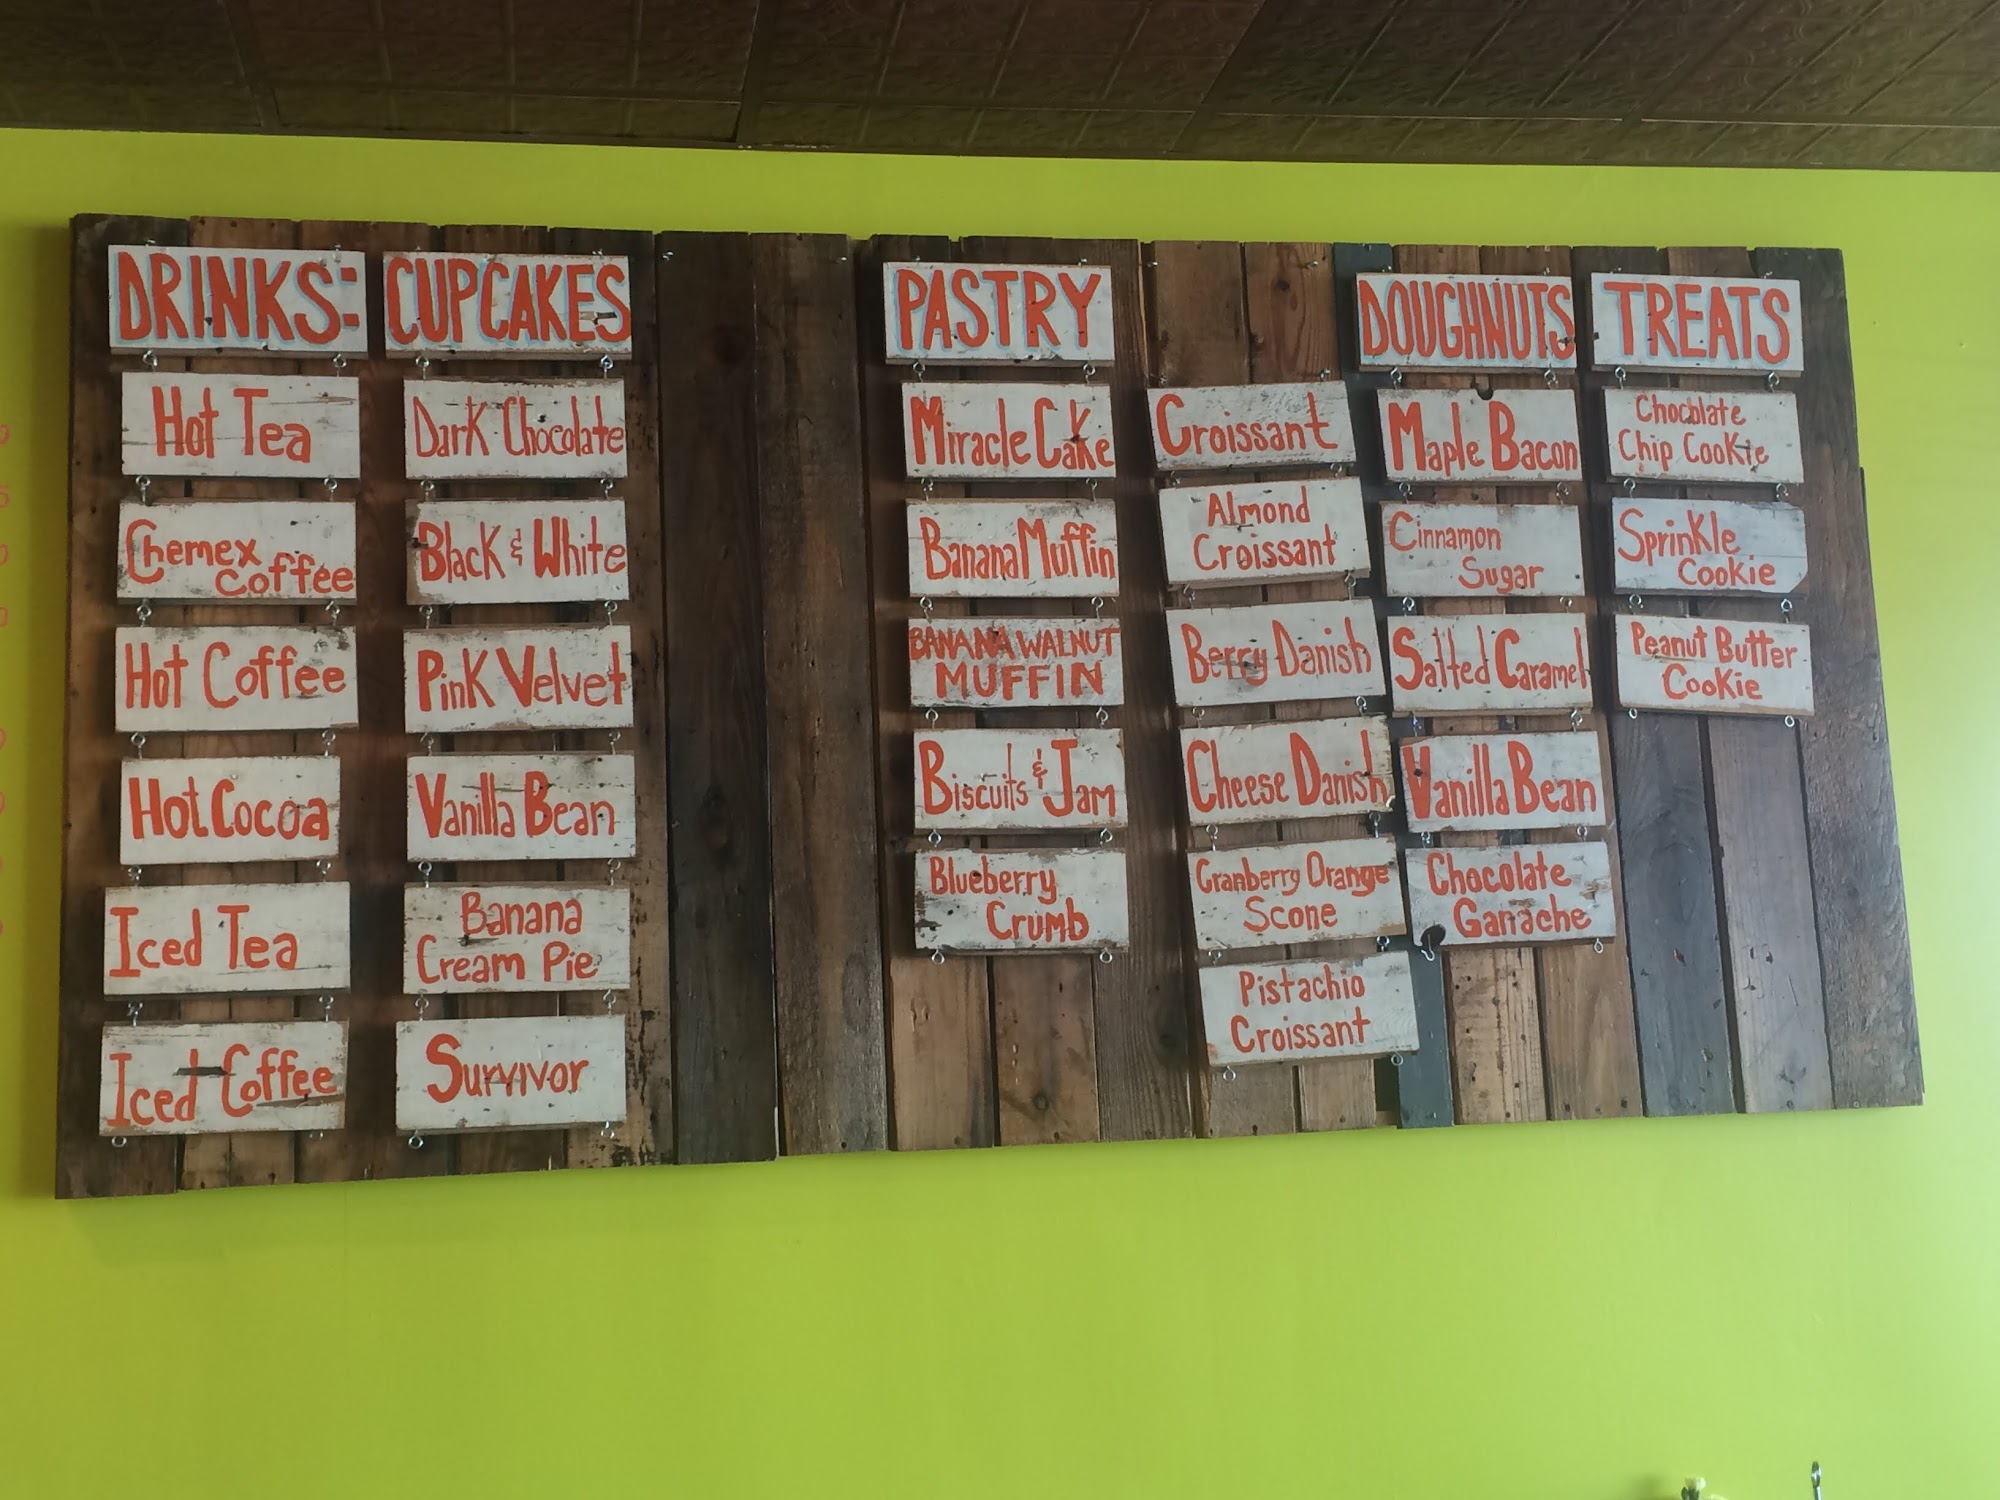 DRINKS:
Hot Tea
Chemex
Coffee
Hot Coffee
Hot Cocoa
Iced Tea
Iced Coffee
CUPCAKES
Dark Chocolate
Black & White
Pink Velvet
Vanilla Bean
Banana
Cream Pie
Survivor
PASTRY
Miracle Cake
Banana Muffin
BANANA WALNUT
MUFFIN
Biscuits & Jam
Blueberry
Crumb
Croissant
Almond
Croissant
Berry Danish
Cheese Danish
Cranberry Orange
Scone
Pistachio
Croissant
DOUGHNUTS
Maple Bacon
Cinnamon
Sugar
Salted Caramel
Vanilla Bean
Chocolate
Ganache
TREATS
Chocolate
Chip Cookie
Sprinkle
Cookie
Peanut Butter
Cookie